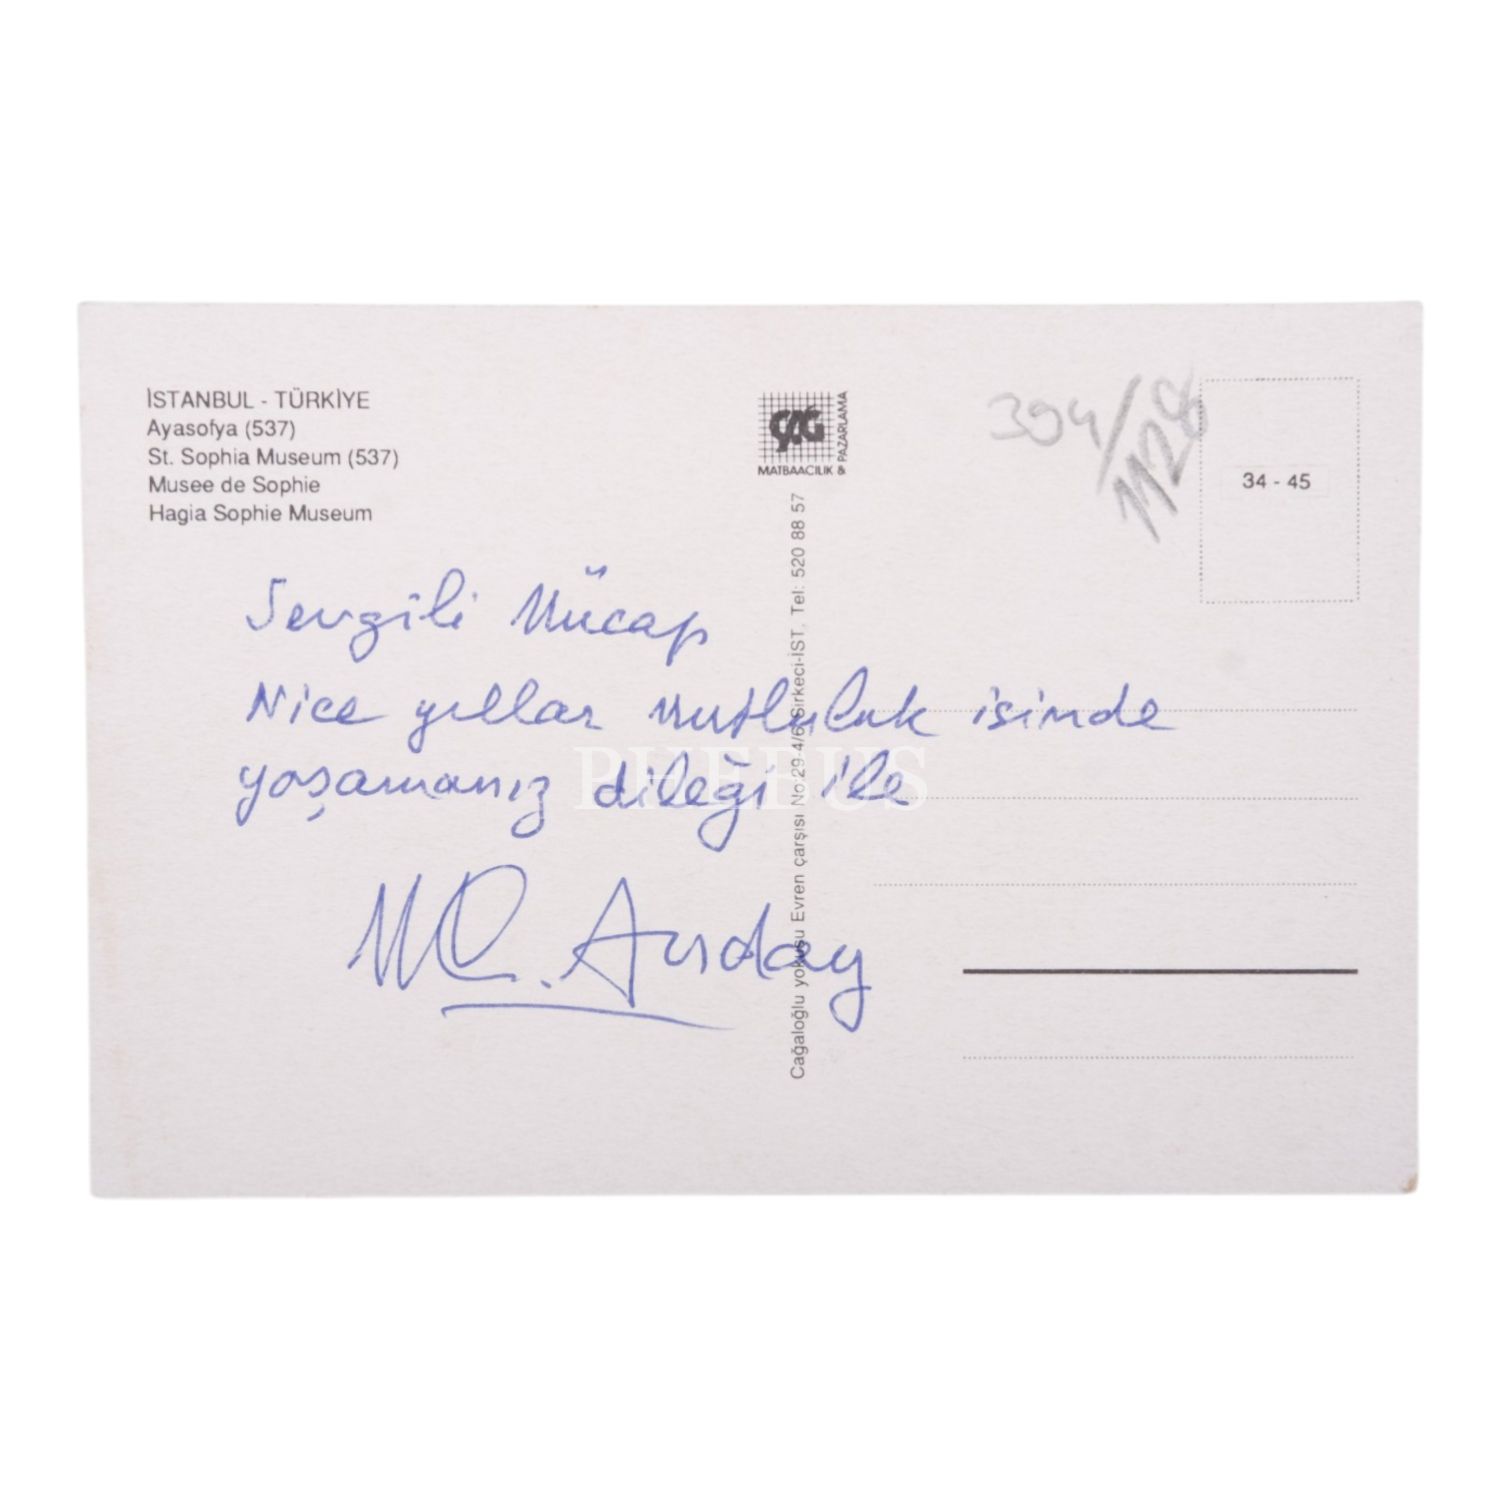 İSTANBUL - TÜRKİYE
Ayasofya (537)
St. Sophia Museum (537)
Musee de Sophie
Hagia Sophie Museum
ÇAĞ
MATBAACILIK &
PAZARLAMA
394/1128
34 - 45
Sevgili Mücap
Nice yıllar mutluluk içinde
yaşamanız dileği ile
MC. Anday
Cağaloğlu yokuşu Evren çarşısı No:29-4/6 Sirkeci-İST. Tel: 520 88 57
PHEBUS